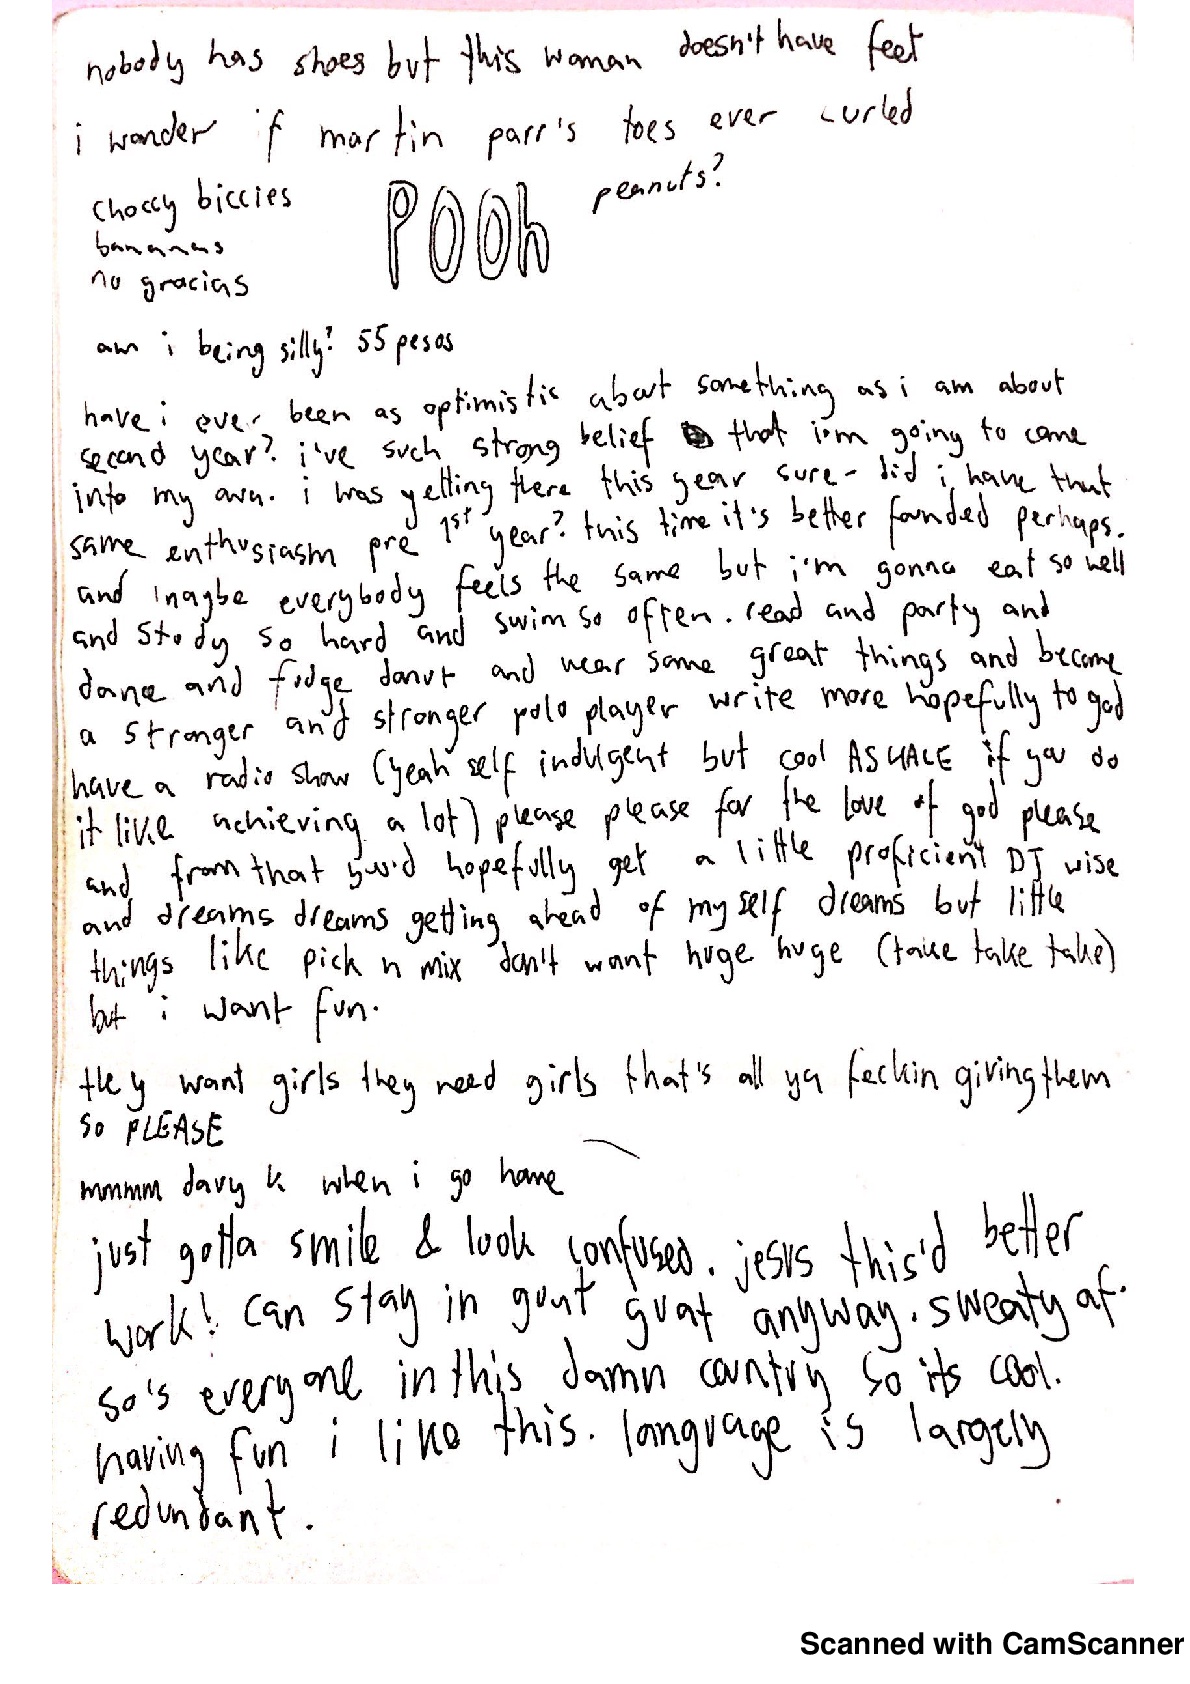 nobody has shoes but this woman doesn't have feet
i wonder if martin parr's toes ever curled
choccy biccies
bananas
no gracias
POOh
peanuts?
am i being silly? 55 pesos
have i ever been as optimistic about something as i am about
second year? i've such strong belief that i'm going to come
into my own. i was getting there this year sure - did i have that
same enthusiasm pre 1st year? this time it's better founded perhaps.
and maybe everybody feels the same but i'm gonna eat so well
and study so hard and swim so often. read and party and
dance and fudge donut and wear some great things and become
a stronger and stronger polo player write more hopefully to god
have a radio show (yeah self indulgent but cool AS HALE if you do
it like achieving a lot) please please for the love of god please
and from that you'd hopefully get a little proficient DJ wise
and dreams dreams getting ahead of myself dreams but little
things like pick n mix don't want huge huge (take take take)
but i want fun.
they want girls they need girls that's all ya feckin giving them
so PLEASE
mmmm davy k when i go home
just gotta smile & look confused. jesus this'd better
work! can stay in guat anyway. sweaty af.
so's everyone in this damn country so its cool.
having fun i like this. language is largely
redundant.
Scanned with CamScanner